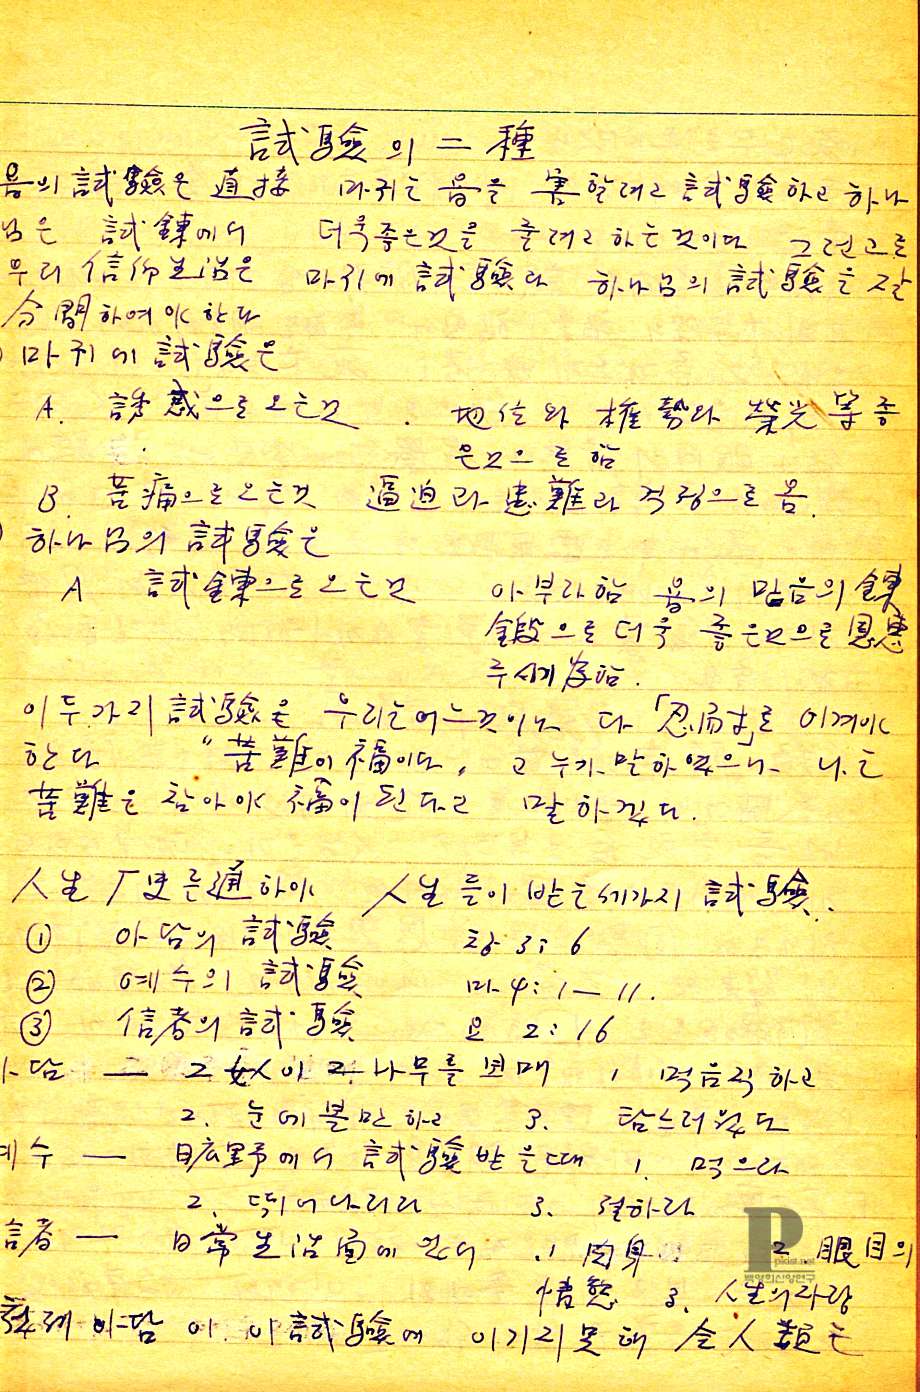 試驗의 二種
욥의 試驗은 直接 마귀는 욥을 害할려고 試驗하고 하나
님은 試鍊에서 더욱좋은것을 줄려고 하는것이다 그런고로
우리 信仰生活은 마귀에 試驗과 하나님의 試驗을 잘
分間하여야 한다
) 마귀에 試驗은
A. 誘惑으로 오는것 . 地位와 權勢와 榮光 等 좋
은것으로 함
B. 苦痛으로 오는것 逼迫과 患難과 걱정으로 옴.
) 하나님의 試驗은
A 試鍊으로 오는것 아부라함 욥의 믿음의 鍊
鍛으로 더욱 좋은것으로 恩惠
주시게 함.
이 두가지 試驗은 우리는 어느것이나 다 「忍耐」로 이겨야
한다 "苦難이 福이다" 고 누가 말하였으나 나는
苦難은 참아야 福이 된다고 말하겠다.
人生 历史를 通하야 人生들이 받는 세가지 試驗.
① 아담의 試驗 창 3:6
② 예수의 試驗 마 4:1-11.
③ 信者의 試驗 요 2:16
아담 — 그 女人이 그 나무를 보매 1. 먹음직하고
2. 눈에 볼만하고 3. 탐스러웠다
예수 — 曠野에서 試驗받을때 1. 먹으라
2. 뛰어나리라 3. 절하라
信者 — 日常生活面에 있어 1. 肉身 2. 眼目의
情慾 3. 人生의 자랑
첫째 아담이 이 試驗에 이기지못해 全人類는
P
pkist.net
백영희신앙연구